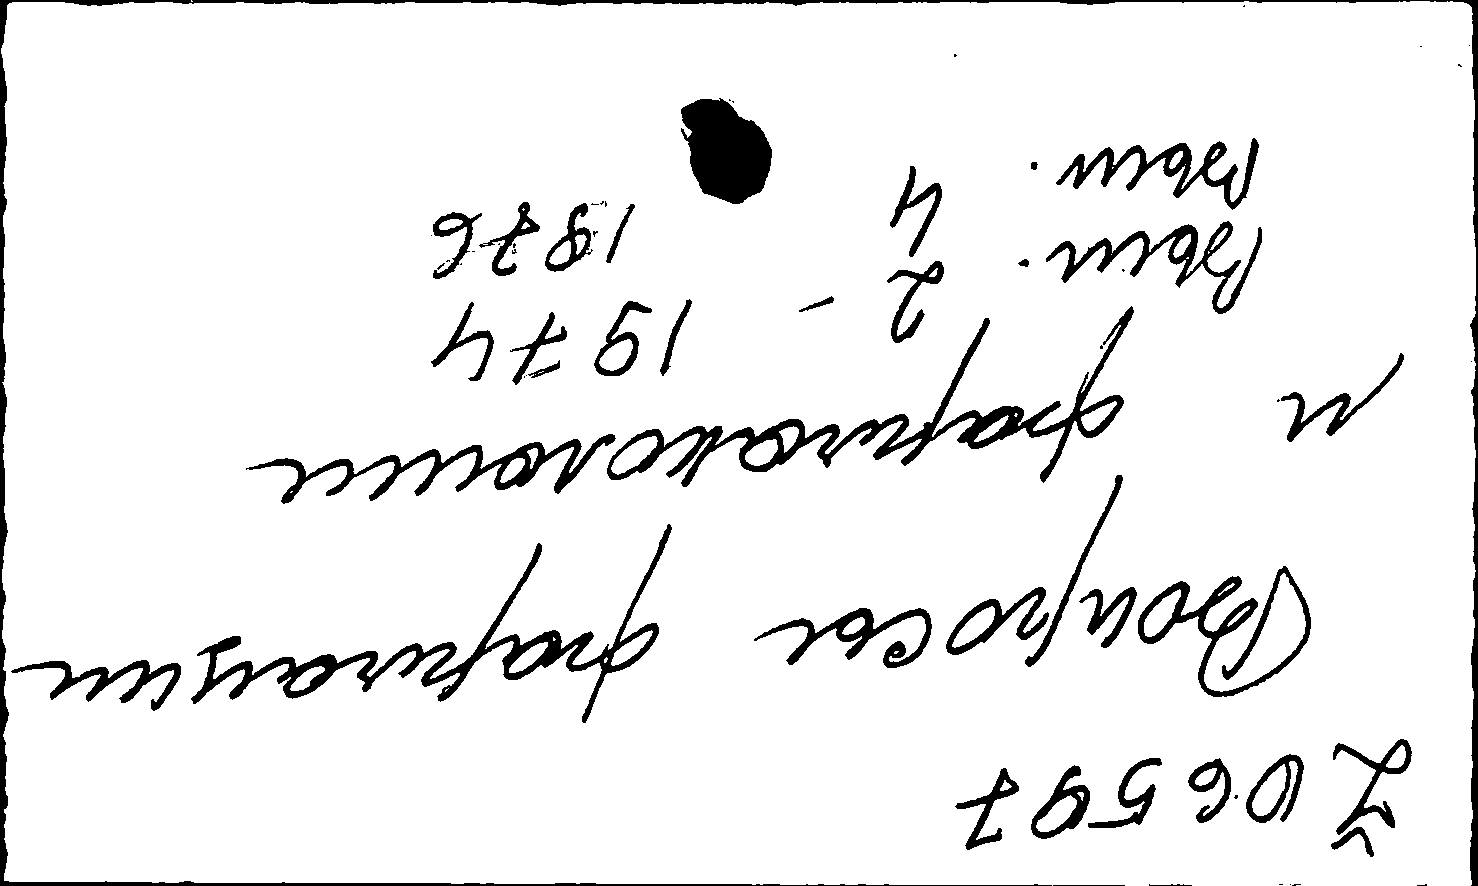 Ž 06597
Вопросы фармации
и фармакологии
Вып. 2 - 1974
Вып. 4 1976